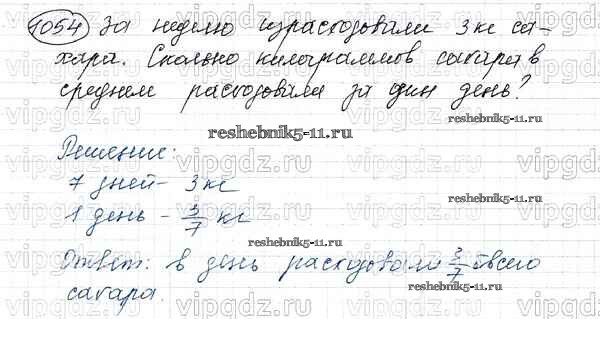 1054 За неделю израсходовали 3 кг са-
хара. Сколько килограммов сахара в
среднем расходовали за один день?
reshebnik5-11.ru
Решение:
7 дней - 3 кг
reshebnik5-11.ru
1 день - 3/7 кг
reshebnik5-11.ru
Ответ: в день расходовали 3/7 всего
сахара.
vipgdz.ru